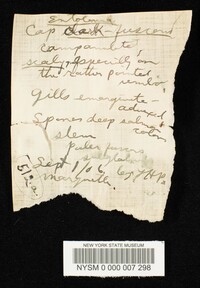 Entoloma
Cap dark-fuscous
campanulate,
scaly, especially on
the rather pointed
umbo,
Gills emarginate-
adnexed
Spores deep salmon
color
stem
paler fuscous
Sept 1/06, by
NEW YORK STATE MUSEUM
NYSM 0 000 007 298